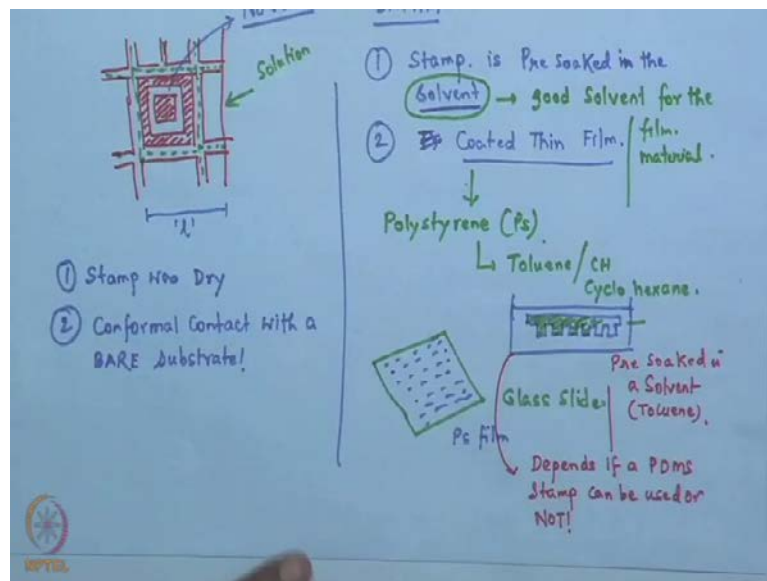 Solution
'l'
① Stamp was Dry
② Conformal Contact with a
BARE Substrate!
① Stamp. is Pre Soaked in the
Solvent → good Solvent for the
film.
material.
② Coated Thin Film.
Polystyrene (Ps).
↳ Toluene / CH
Cyclo hexane.
Glass Slide.
Pre Soaked in
a Solvent
(Toluene).
Ps film
Depends If a PDMS
Stamp can be used or
NOT!
NPTEL